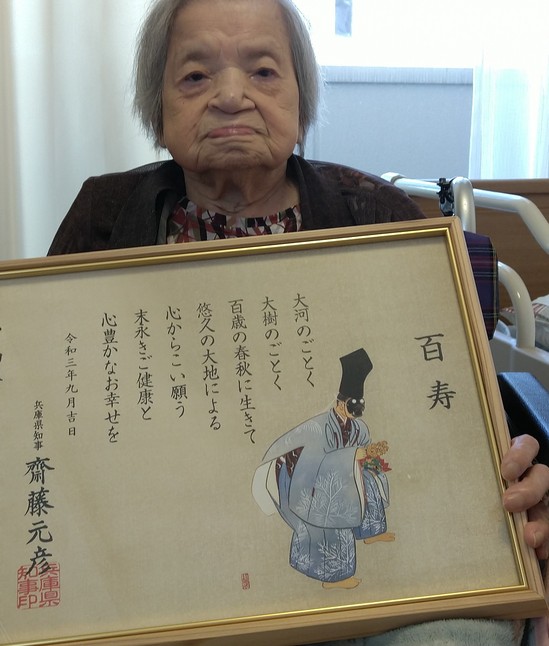 百寿
大河のごとく
大樹のごとく
百歳の春秋に生きて
悠久の大地による
心からこい願う
末永きご健康と
心豊かなお幸せを
令和三年九月吉日
兵庫県知事 齋藤元彦
兵庫県知事印